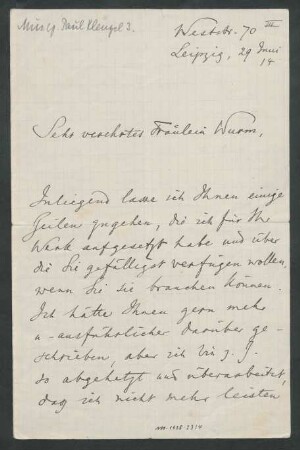 Mus. Ep. Paul Klengel 3.
WestStr. 70 III
Leipzig, 29 Juni
14
Sehr verehrtes Fräulein Wurm,
Inliegend lasse ich Ihnen einige
Zeilen zugehen, die ich für Ihr
Werk aufgesetzt habe und über
die Sie gefälligst verfügen wollen,
wenn Sie sie brauchen können.
Ich hätte Ihnen gern mehr
u. ausführlicher darüber ge-
schrieben, aber ich bin z. Z.
so abgehetzt und überarbeitet,
daß ich nicht mehr leisten